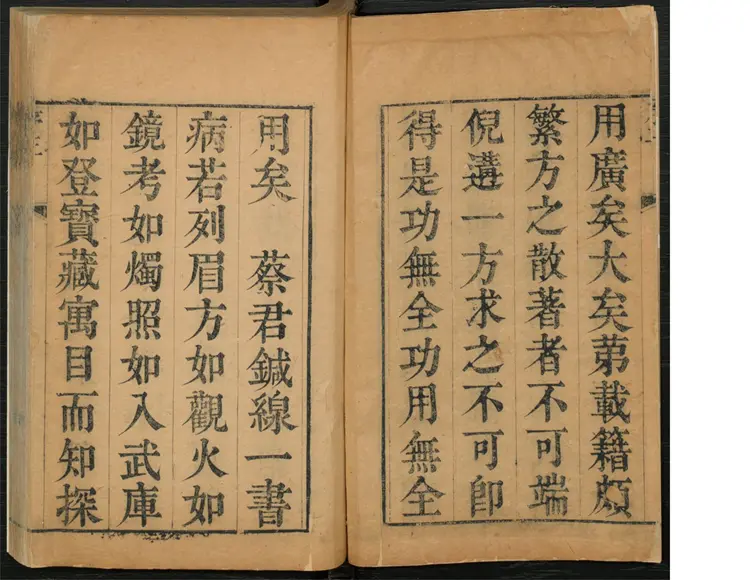 用廣矣大矣苐載籍頗
繁方之散著者不可端
倪遘一方求之不可卽
得是功無全功用無全
用矣　蔡君鍼線一書
病若列眉方如觀火如
鏡考如燭照如入武庫
如登寶藏寓目而知探